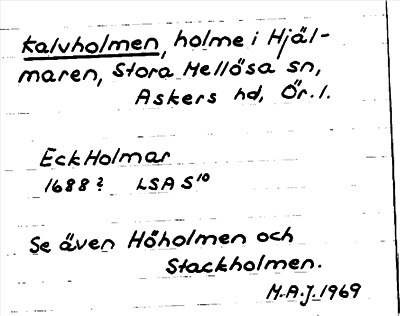 Kalvholmen, holme i Hjäl-
maren, Stora Mellösa sn,
Askers hd, Ör. l.
EckHolmar
1688? LSA S10
Se även Höholmen och
Stackholmen.
M.A.J. 1969